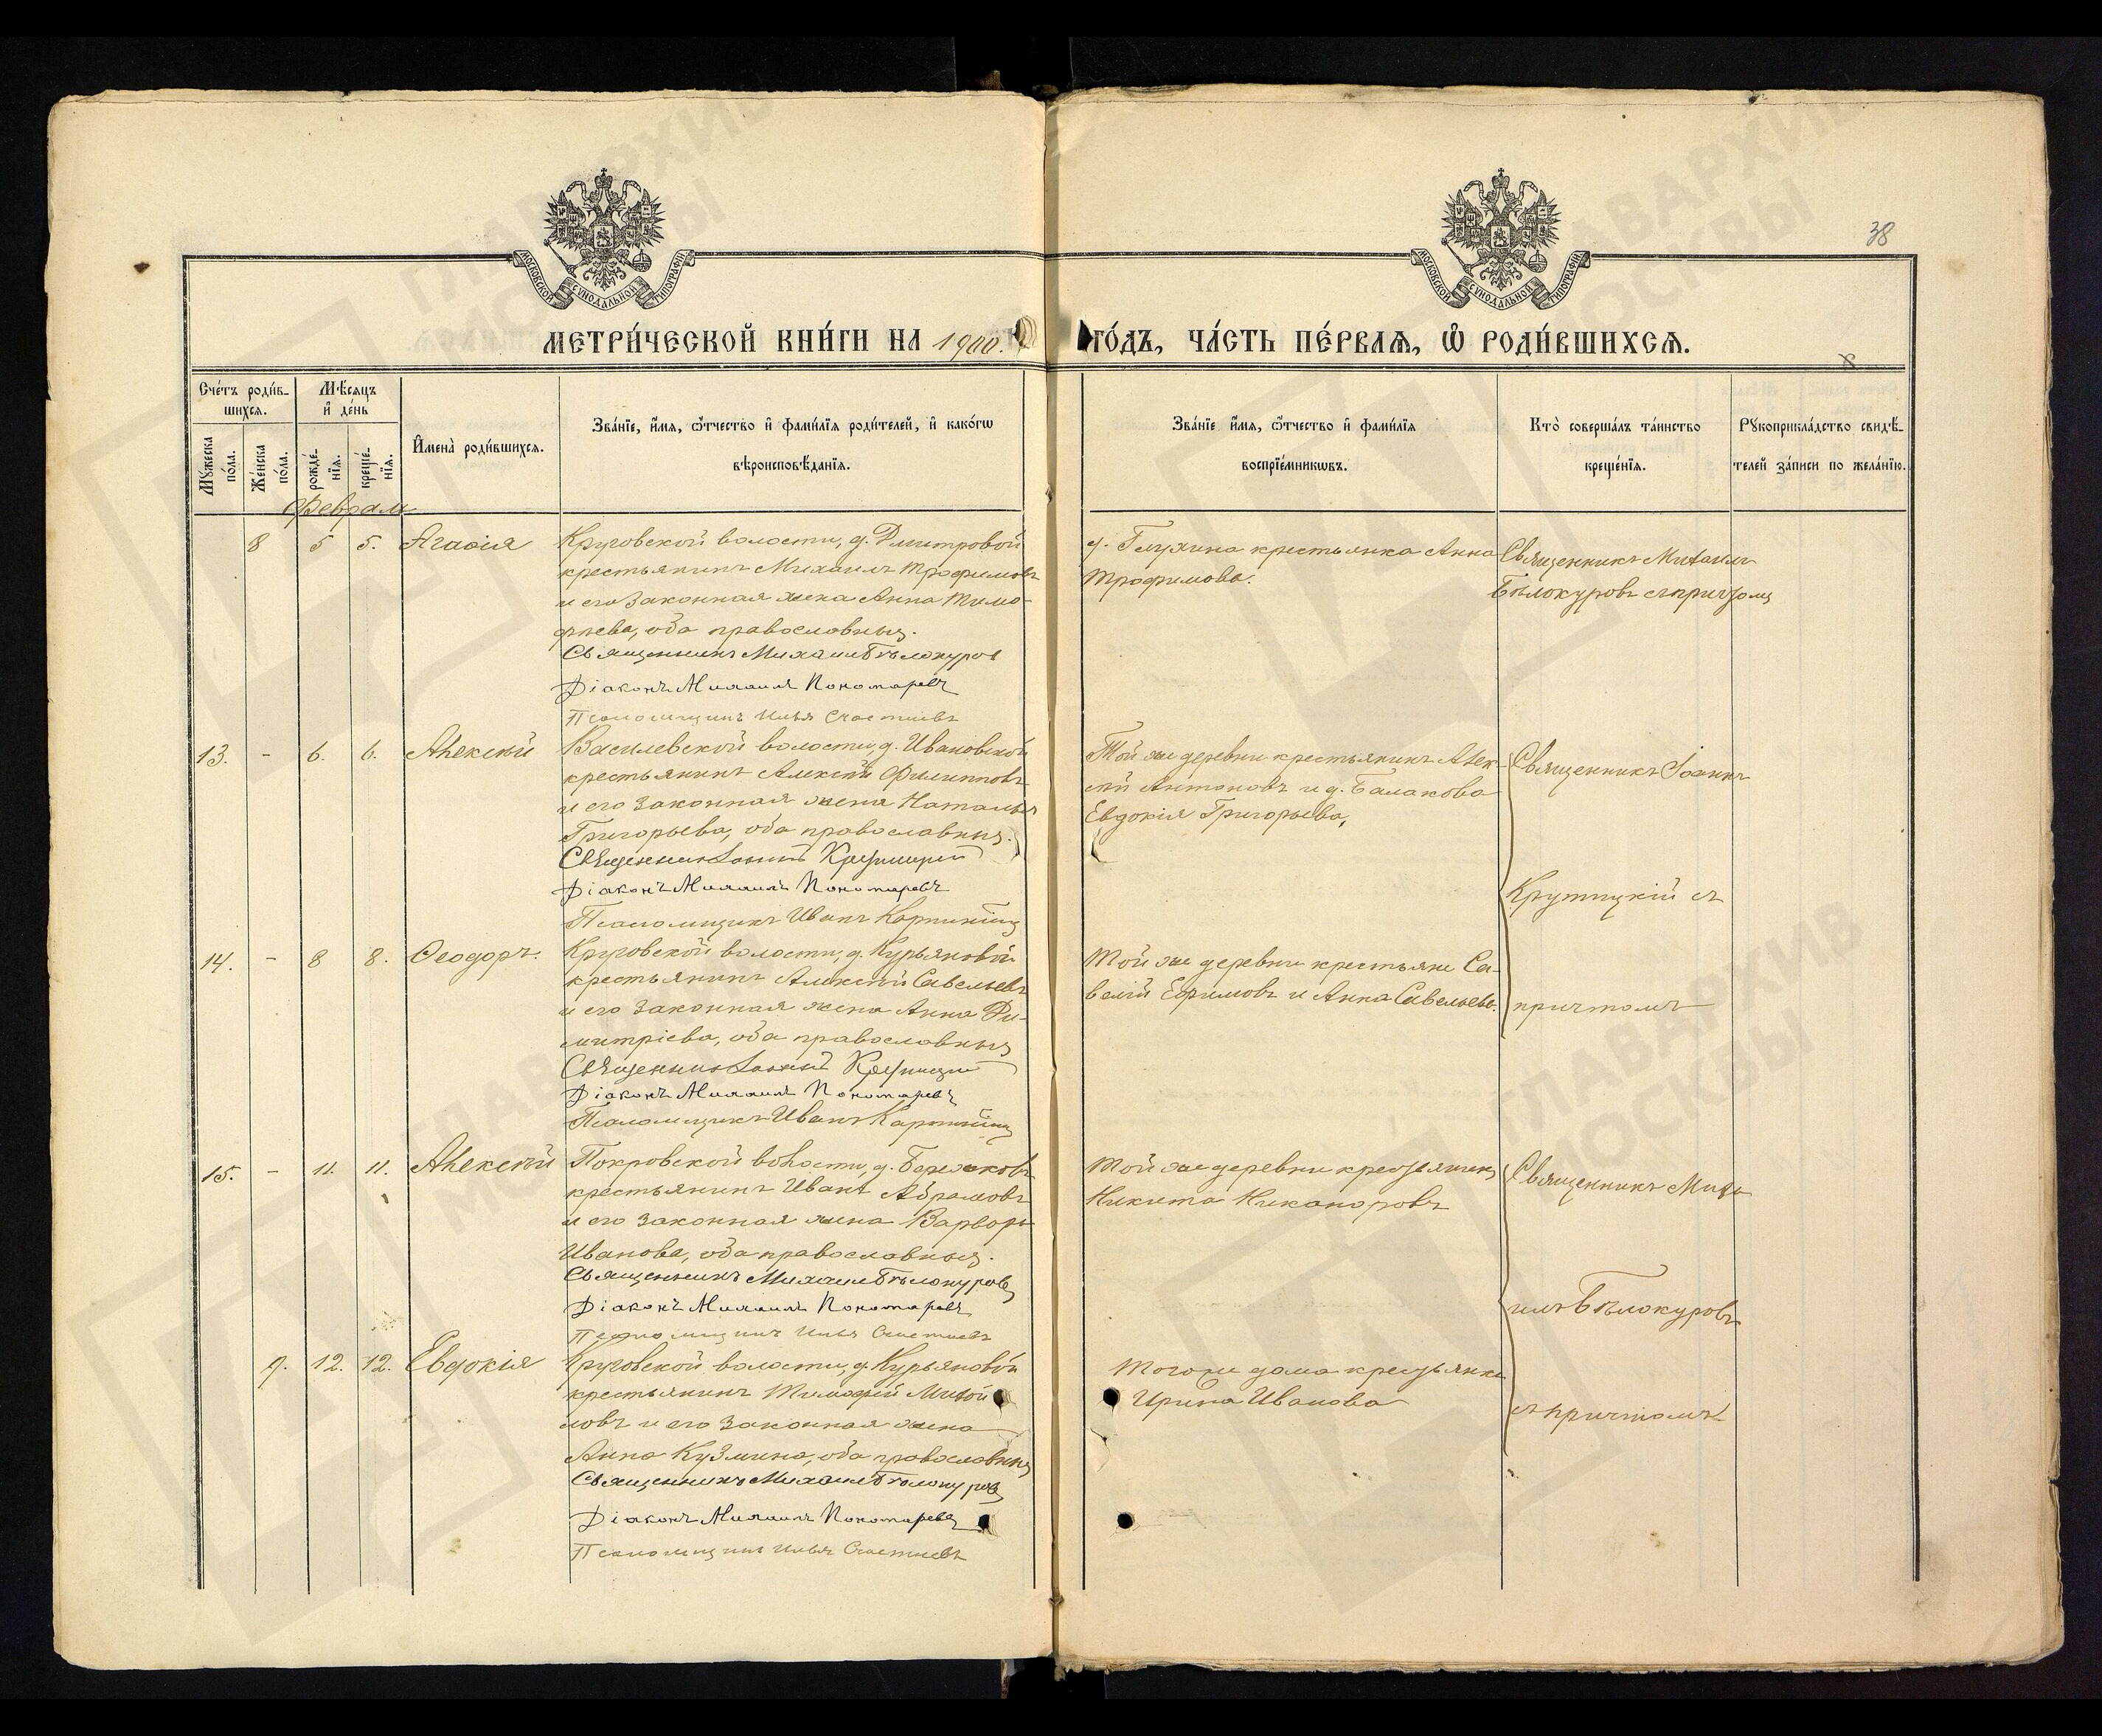 38
МОСКОВСКОЙ СѴНОДАЛЬНОЙ ТИПОГРАФІИ
МОСКОВСКОЙ СѴНОДАЛЬНОЙ ТИПОГРАФІИ
МЕТРИ́ЧЕСКОЙ КНИ́ГИ НА 1900.
ГО́ДЪ, ЧА́СТЬ ПЕ́РВАѦ, Ѡ҆ РОДИ́ВШИХСѦ.
Сче́тъ роди́в-
шихсѧ.
Мꙋ́жеска по́ла.
Же́нска по́ла.
Мѣ́сѧцъ и҆ де́нь
рожде́-нїѧ.
креще́-нїѧ.
И҆мена̀ роди́вшихсѧ.
Зва́нїе, и҆́мѧ, ѻ҆́тчество и҆ фами́лїѧ роди́телей, и҆ како́гѡ
вѣроисповѣ́данїѧ.
Зва́нїе и҆́мѧ, ѻ҆́тчество и҆ фами́лїѧ
воспрїе́мникѡвъ.
Кто̀ соверша́лъ та́инство
креще́нїѧ.
Рꙋкоприкла́дство свидѣ́-
телей за́писи по жела́нїю.
Февраля
8 5 5. Агафія
Круговской волости, д. Дмитровой
крестьянинъ Михаилъ Трофимовъ
и его законная жена Анна Тимо-
феева, оба православныя.
Священникъ Михаилъ Бѣлокуровъ
Діаконъ Михаилъ Пономаревъ
Псаломщикъ Илья Счастневъ
д. Глухина крестьянка Анна
Трофимова.
Священникъ Михаилъ
Бѣлокуровъ съ причтомъ
13. - 6. 6. Алексѣй
Василевской волости, д. Ивановской
крестьянинъ Алексѣй Филипповъ
и его законная жена Наталья
Григорьева, оба православныя.
Священникъ Іоаннъ Крутицкій
Діаконъ Михаилъ Пономаревъ
Псаломщикъ Иванъ
Той же деревни крестьянинъ Алек-
сѣй Антоновъ и д. Балакова
Евдокія Григорьева,
Священникъ Іоаннъ
Крутицкій съ
причтомъ
14. - 8 8. Ѳеодоръ.
Круговской волости, д. Курьяновой
крестьянинъ Алексѣй Савельевъ
и его законная жена Анна Ди-
митріева, оба православныя
Священникъ Іоаннъ Крутицкій
Діаконъ Михаилъ Пономаревъ
Псаломщикъ Иванъ
Той же деревни крестьяне Са-
велій Ефимовъ и Анна Савельева.
15. - 11. 11. Алексѣй
Покровской волости, д.
крестьянинъ Иванъ Абрамовъ
и его законная жена Варвара
Иванова, оба православныя.
Священникъ Михаилъ Бѣлокуровъ
Діаконъ Михаилъ Пономаревъ
Псаломщикъ Илья Счастневъ
Той же деревни крестьянинъ
Никита Никаноровъ
Священникъ Миха-
илъ Бѣлокуровъ
съ причтомъ
9. 12. 12. Евдокія
Круговской волости, д. Курьяновой
крестьянинъ Тимофей Михай-
ловъ и его законная жена
Анна Кузмина, оба православныя
Священникъ Михаилъ Бѣлокуровъ
Діаконъ Михаилъ Пономаревъ
Псаломщикъ Илья Счастневъ
Того же дома крестьянка
Ирина Иванова
ГЛАВАРХИВ МОСКВЫ